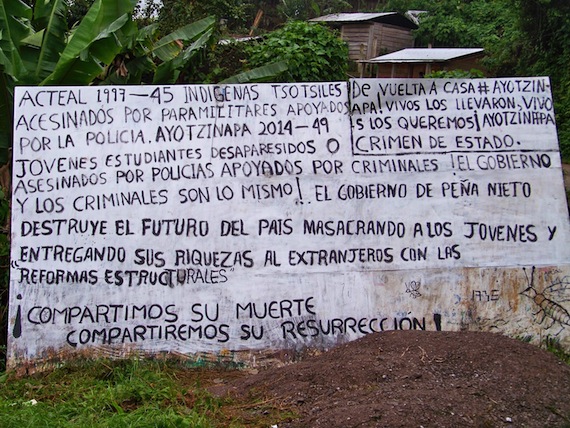 ACTEAL 1997-45 INDIGENAS TSOTSILES
ACESINADOS POR PARAMILITARES APOYADOS
POR LA POLICIA. AYOTZINAPA 2014-49
JOVENES ESTUDIANTES DESAPARESIDOS O
ASESINADOS POR POLICIAS APOYADOS POR CRIMINALES ¡EL GOBIERNO
Y LOS CRIMINALES SON LO MISMO! EL GOBIERNO DE PEÑA NIETO
DESTRUYE EL FUTURO DEL PAIS MASACRANDO A LOS JOVENES Y
"ENTREGANDO SUS RIQUEZAS AL EXTRANJEROS CON LAS
REFORMAS ESTRUCTURALES"
¡COMPARTIMOS SU MUERTE
COMPARTIREMOS SU RESURRECCIÓN!
DE VUELTA A CASA # AYOTZIN-
APA! VIVOS LOS LLEVARON, VIVO
S LOS QUEREMOS ¡AYOTZINAPA
CRIMEN DE ESTADO.